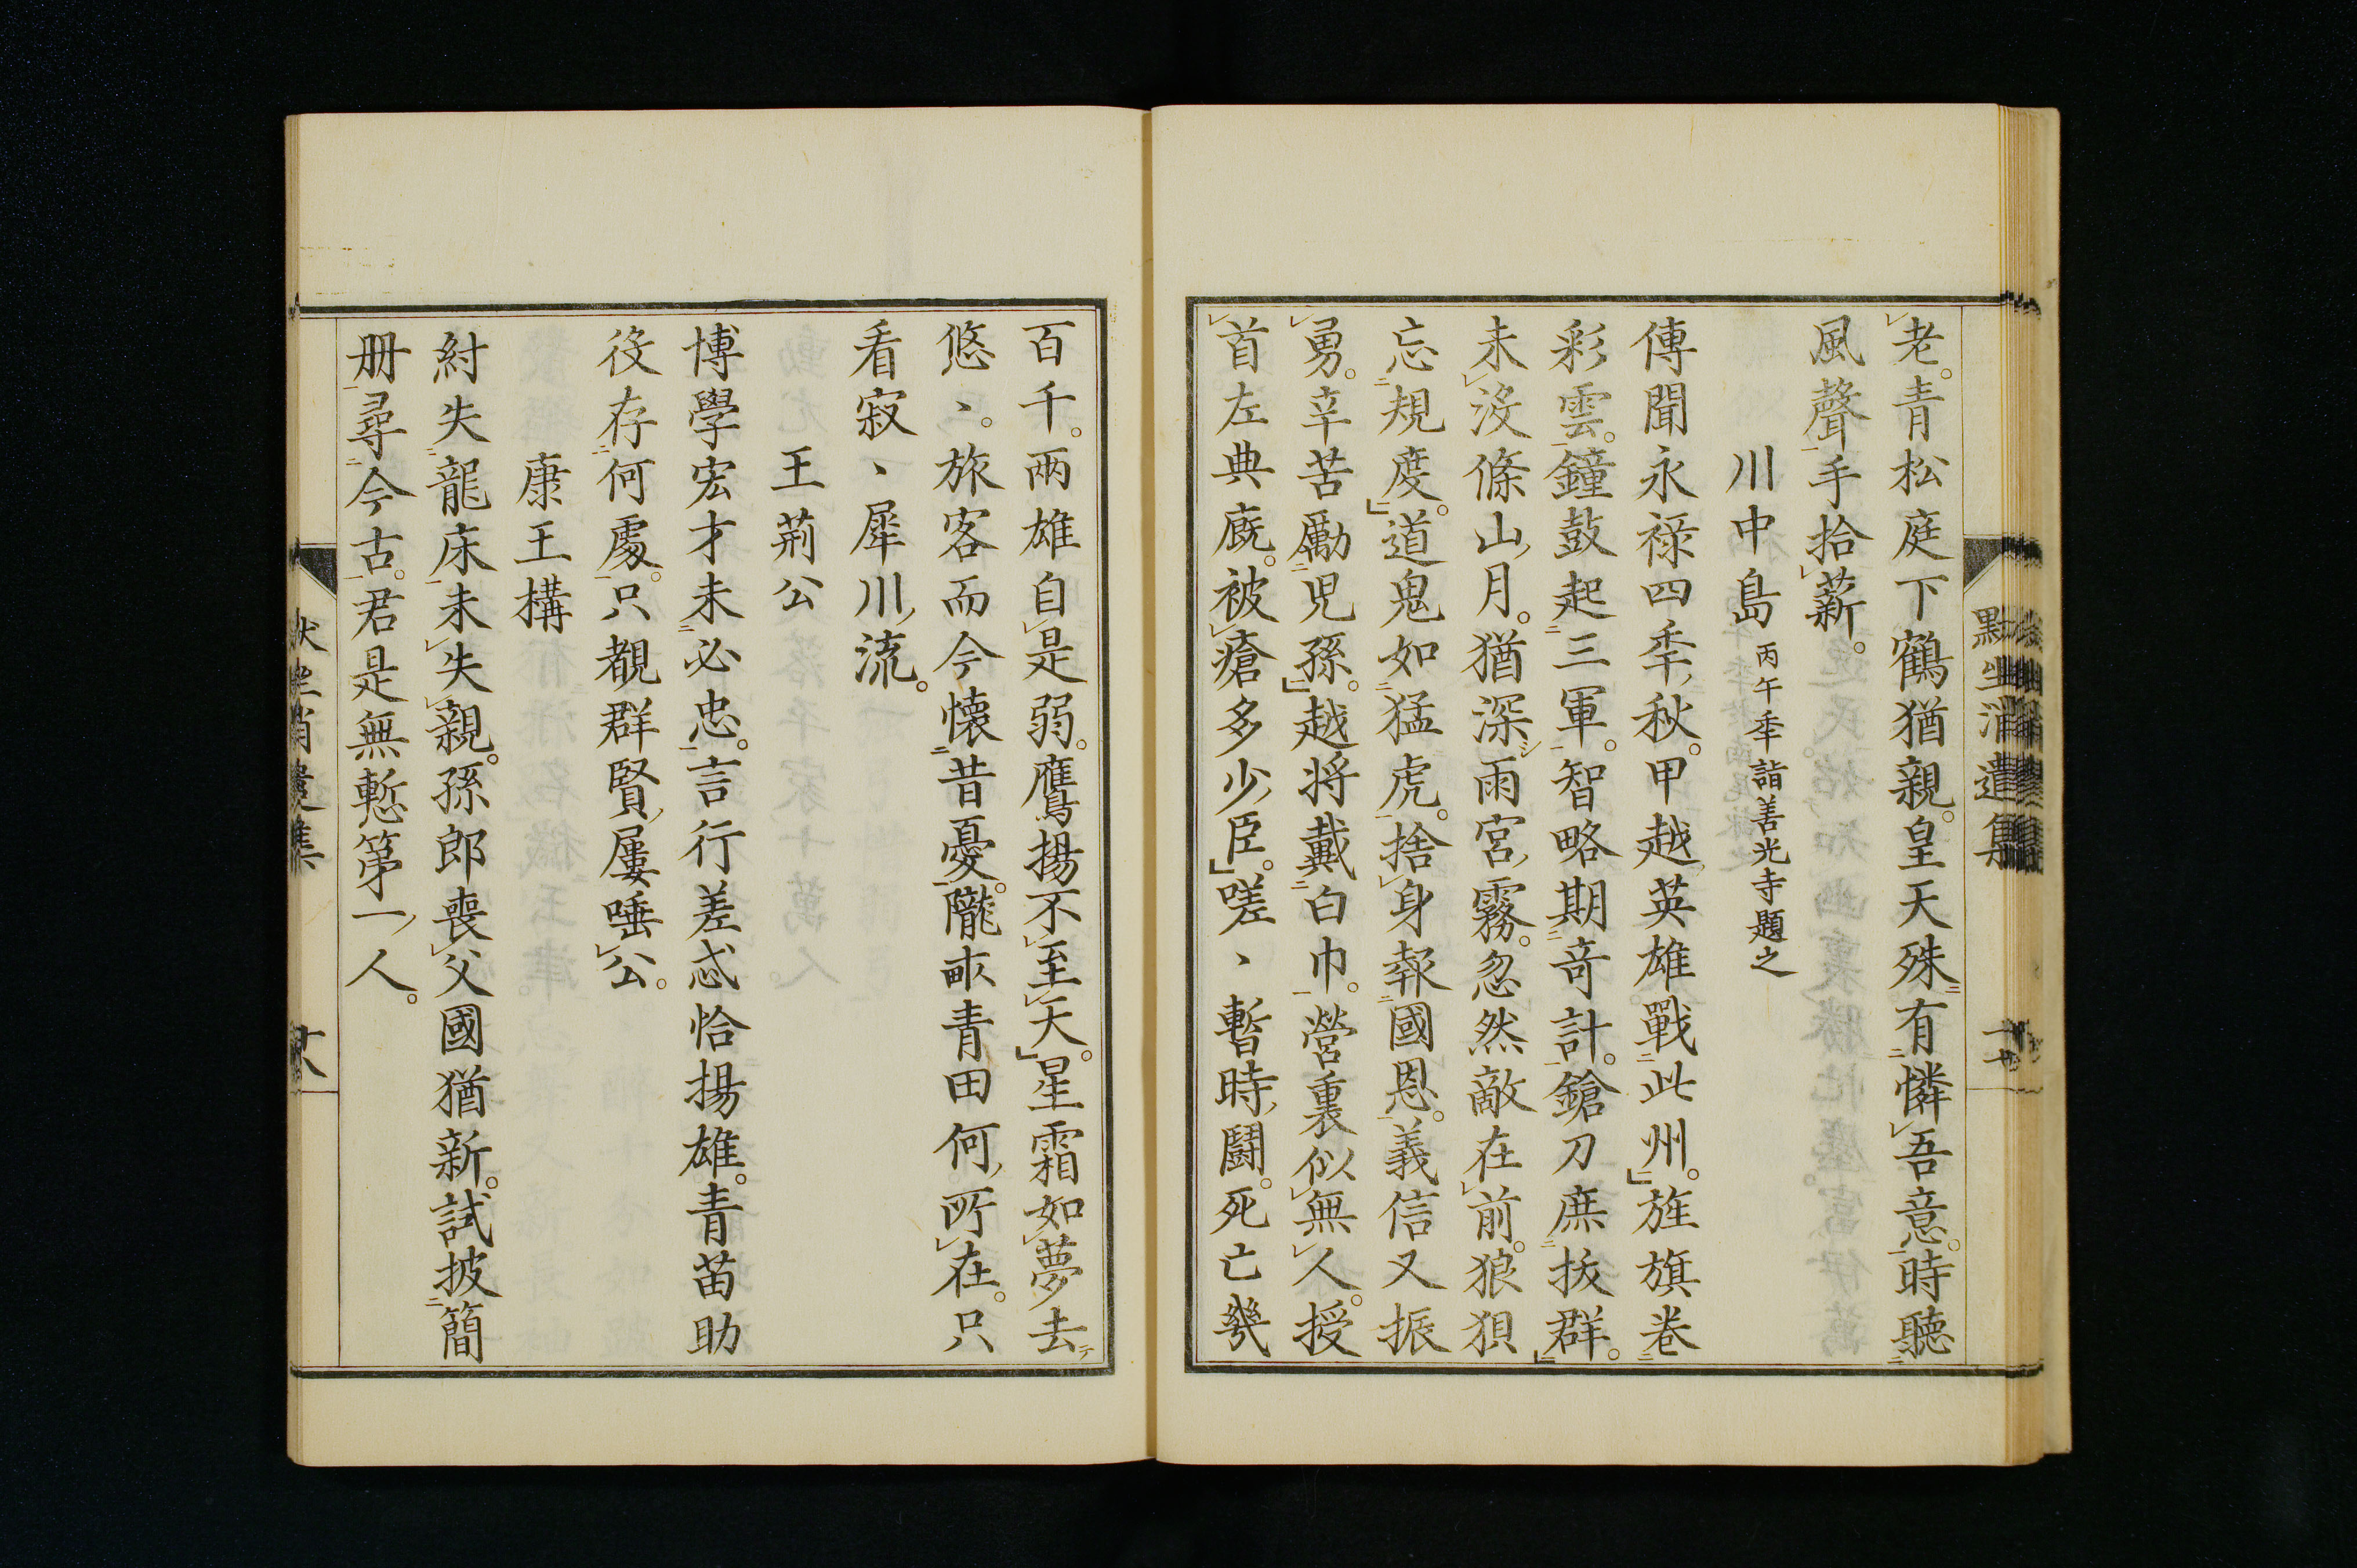 默坐消遣集
十七
老。青松庭下鶴猶親。皇天殊有憐吾意。時聽
風聲手拾薪。
川中島 丙午季詣善光寺題之
傳聞永祿四季秋。甲越英雄戰此州。旌旗卷
彩雲。鐘鼓起三軍。智略期奇計。鎗刀庶拔群。
未沒條山月。猶深雨宮霧。忽然敵在前。狼狽
忘規度。道鬼如猛虎。捨身報國恩。義信又振
勇。辛苦勵児孫。越将戴白巾。營裏似無人。授
首左典廐。被瘡多少臣。嗟、暫時鬪。死亡幾
百千。兩雄自是弱。鷹揚不至天。星霜如夢去
悠、。旅客而今懐昔憂。隴畝青田何所在。只
看寂、犀川流。
王荊公
博學宏才未必忠。言行差忒恰揚雄。青苗助
役存何處。只覩群賢屢唾公。
康王構
紂失龍床未失親。孫郎喪父國猶新。試披簡
册尋今古。君是無慙第一人。
默坐消遣集
十八